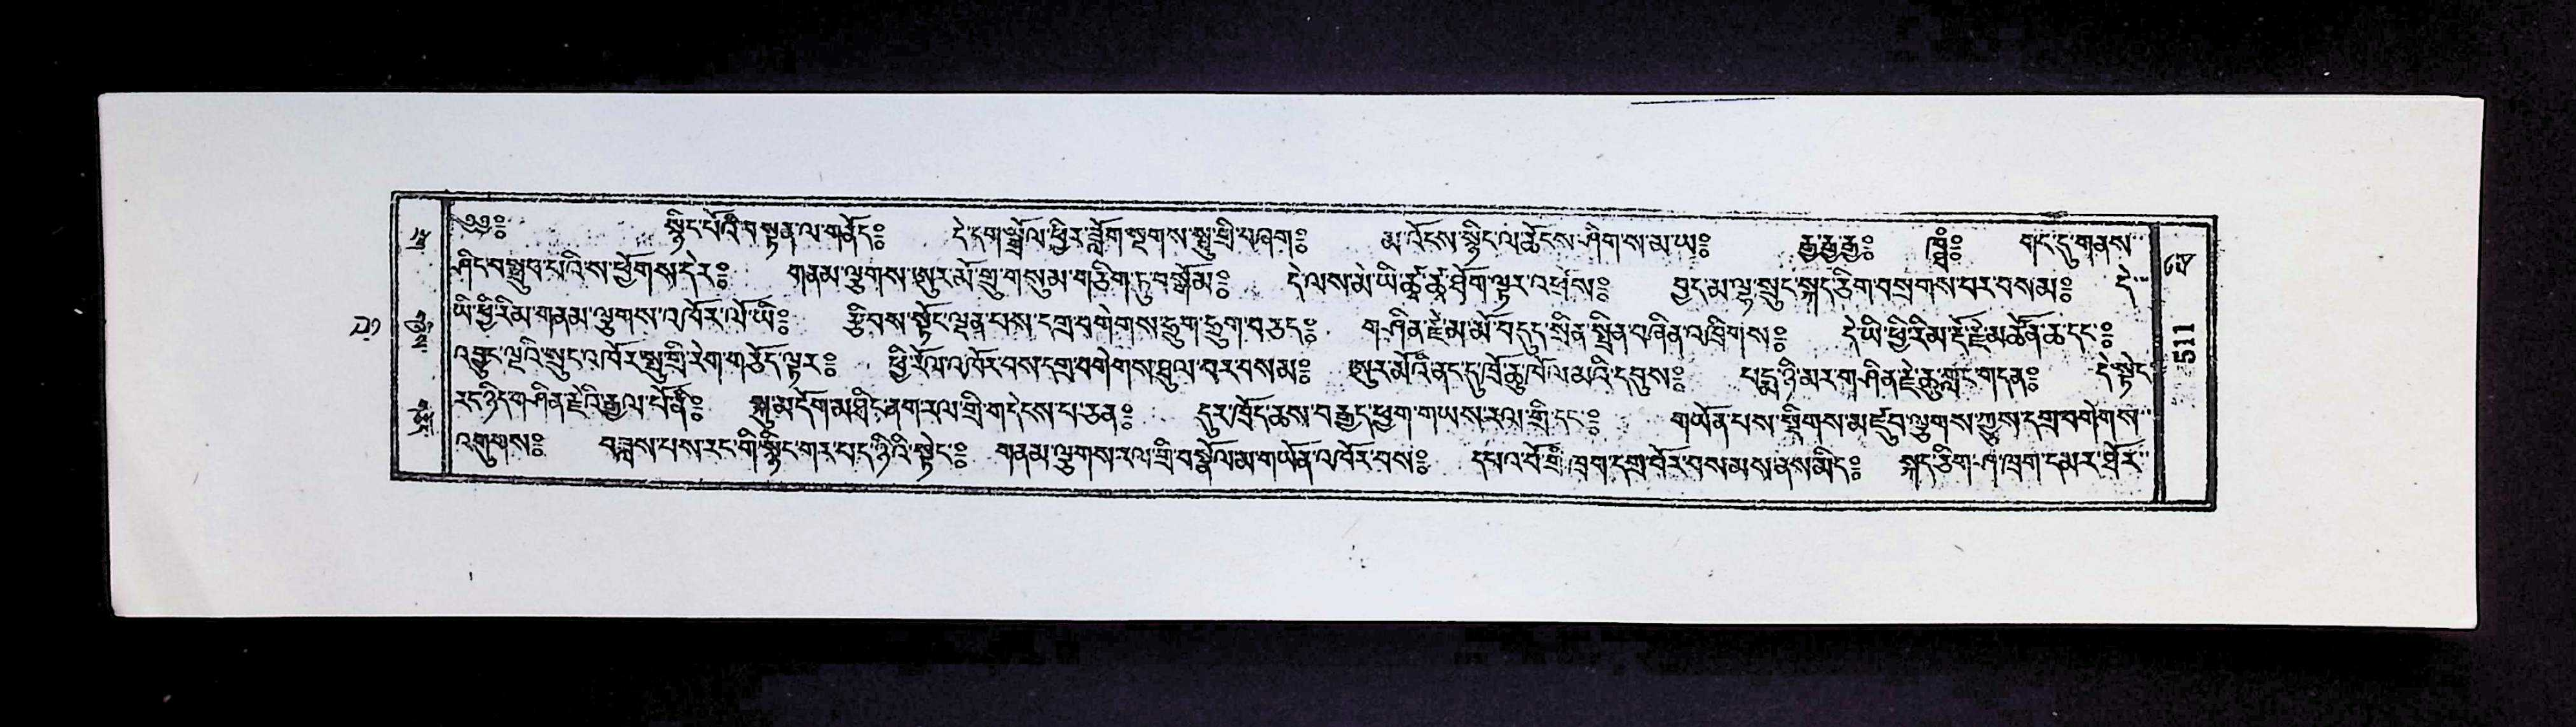 ༄༅༔ སྙིང་པོའི་བསྟན་ལ་གནོད༔ དེ་དག་སྒྲོལ་ཕྱིར་ཟློག་སྔགས་སྤུ་གྲི་བཞག༔ མ་འོངས་སྙིང་ལ་ཆེངས་ཤིག་ས་མ་ཡ༔ རྒྱ་རྒྱ་རྒྱ༔ གང་དུ་གནས་
ཤིང་བསྒྲུབ་པའི་ས་ཕྱོགས་དེར༔ གནམ་ལྕགས་ཨུར་མོ་གྲུ་གསུམ་གཅིག་ཏུ་བསྒོམ༔ དེ་ལས་མེ་ཡི་ཚྭ་ཚྭ་ཐོག་ལྟར་འཕྲོས༔ བྱད་མ་ལྷ་སྲུང་སྐད་ཅིག་བསྲེགས་པར་བསམ༔ དེ་
ཡི་ཕྱི་རིམ་གནམ་ལྕགས་འཁོར་ལོ་ཡི༔ རྩིབས་སྟོང་ལྡན་པས་དགྲ་བགེགས་དྲུག་དྲུག་བཅད༔ གཤིན་རྗེ་མ་མོ་བདུད་སྲིན་སྤྲིན་བཞིན་འཁྲིགས༔ དེ་ཡི་ཕྱི་རིམ་རྡོ་རྗེ་མཚོན་ཆ་དང་༔
འབྱུང་ལྔའི་སྲུང་འཁོར་སྤུ་གྲི་རེག་གཅོད་ལྟར༔ ཕྱི་རོལ་འཁོར་བས་དགྲ་བགེགས་ཐུལ་བར་བསམ༔ ཨུར་མོའི་ནང་དུ་ཁྲོ་ཆུ་ཁོལ་མའི་དབུས༔ པདྨ་ཉི་མར་གཤིན་རྗེ་ཆུ་གླང་གདན༔ དེ་སྟེང་
རང་ཉིད་གཤིན་རྗེའི་རྒྱལ་པོ་ནི༔ སྐུ་མདོག་མཐིང་ནག་རལ་གྲི་གདེངས་པ་ཅན༔ དུར་ཁྲོད་ཆས་བརྒྱད་ཕྱག་གཡས་རལ་གྲི་དང་༔ གཡོན་པས་སྡིགས་མཛུབ་ལྕགས་ཀྱུས་དགྲ་བགེགས་
འགུགས༔ བཟླས་པས་རང་གི་སྙིང་གར་པད་ཉིའི་སྟེང་༔ གནམ་ལྕགས་རལ་གྲི་བསྣོལ་མ་གཡོན་འཁོར་བས༔ དཔའ་བོ་གྲི་ཁྲག་དགྲ་བོར་བསམས་ནས་མིད༔ སྐད་ཅིག་ཤ་ཁྲག་དམར་ཐོར་
511